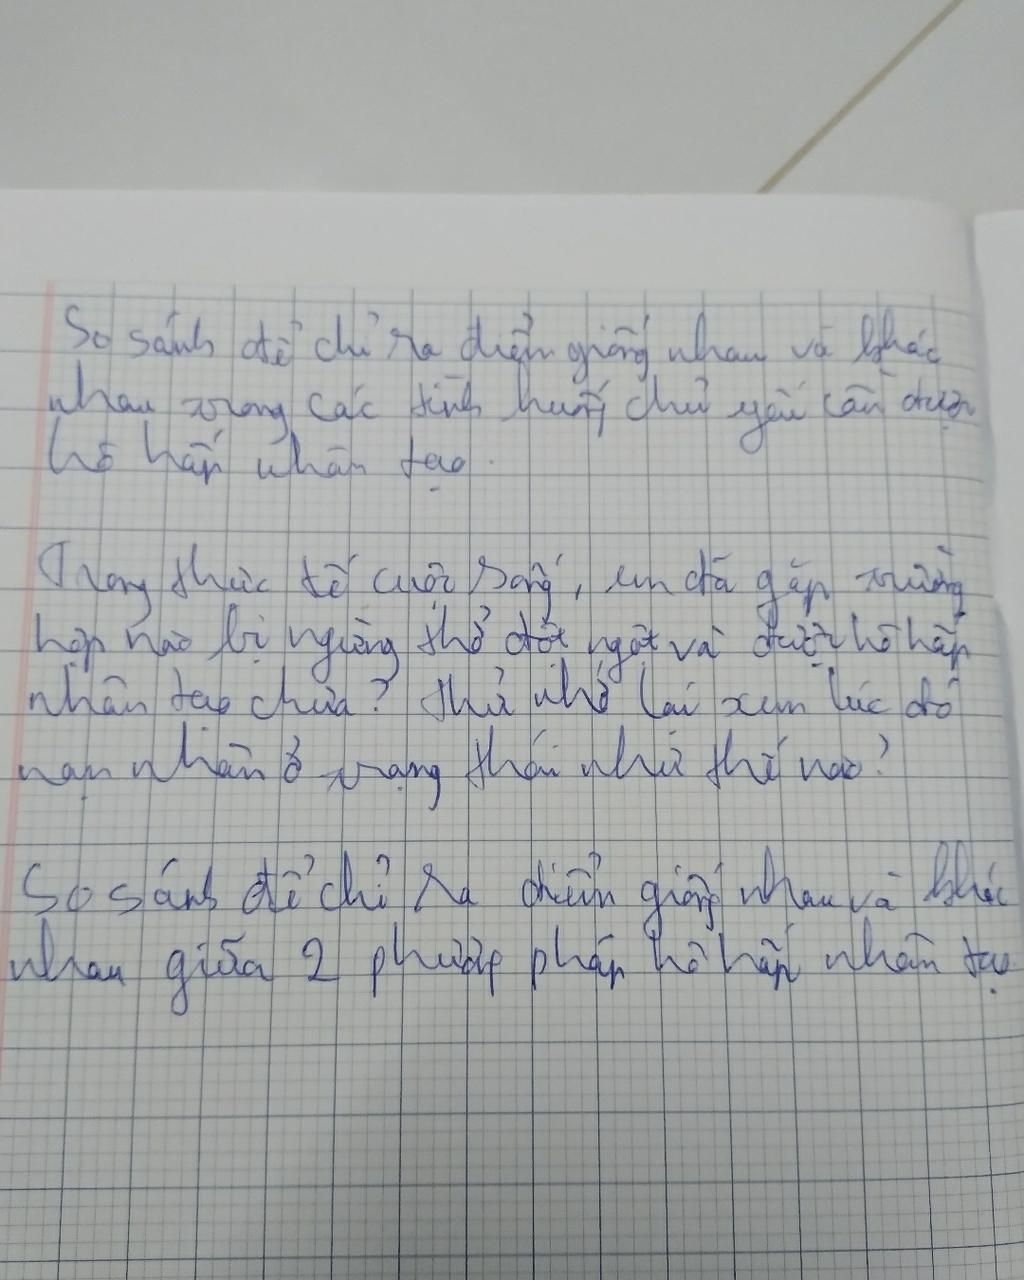 So sánh để chỉ ra điểm giống nhau và khác
nhau trong các tình huống chủ yếu cần được
hô hấp nhân tạo.
Trong thực tế cuộc sống, em đã gặp trường
hợp nào bị ngừng thở đột ngột và được hô hấp
nhân tạo chưa? Thử nhớ lại xem lúc đó
nạn nhân ở trạng thái như thế nào?
So sánh để chỉ ra điểm giống nhau và khác
nhau giữa 2 phương pháp hô hấp nhân tạo